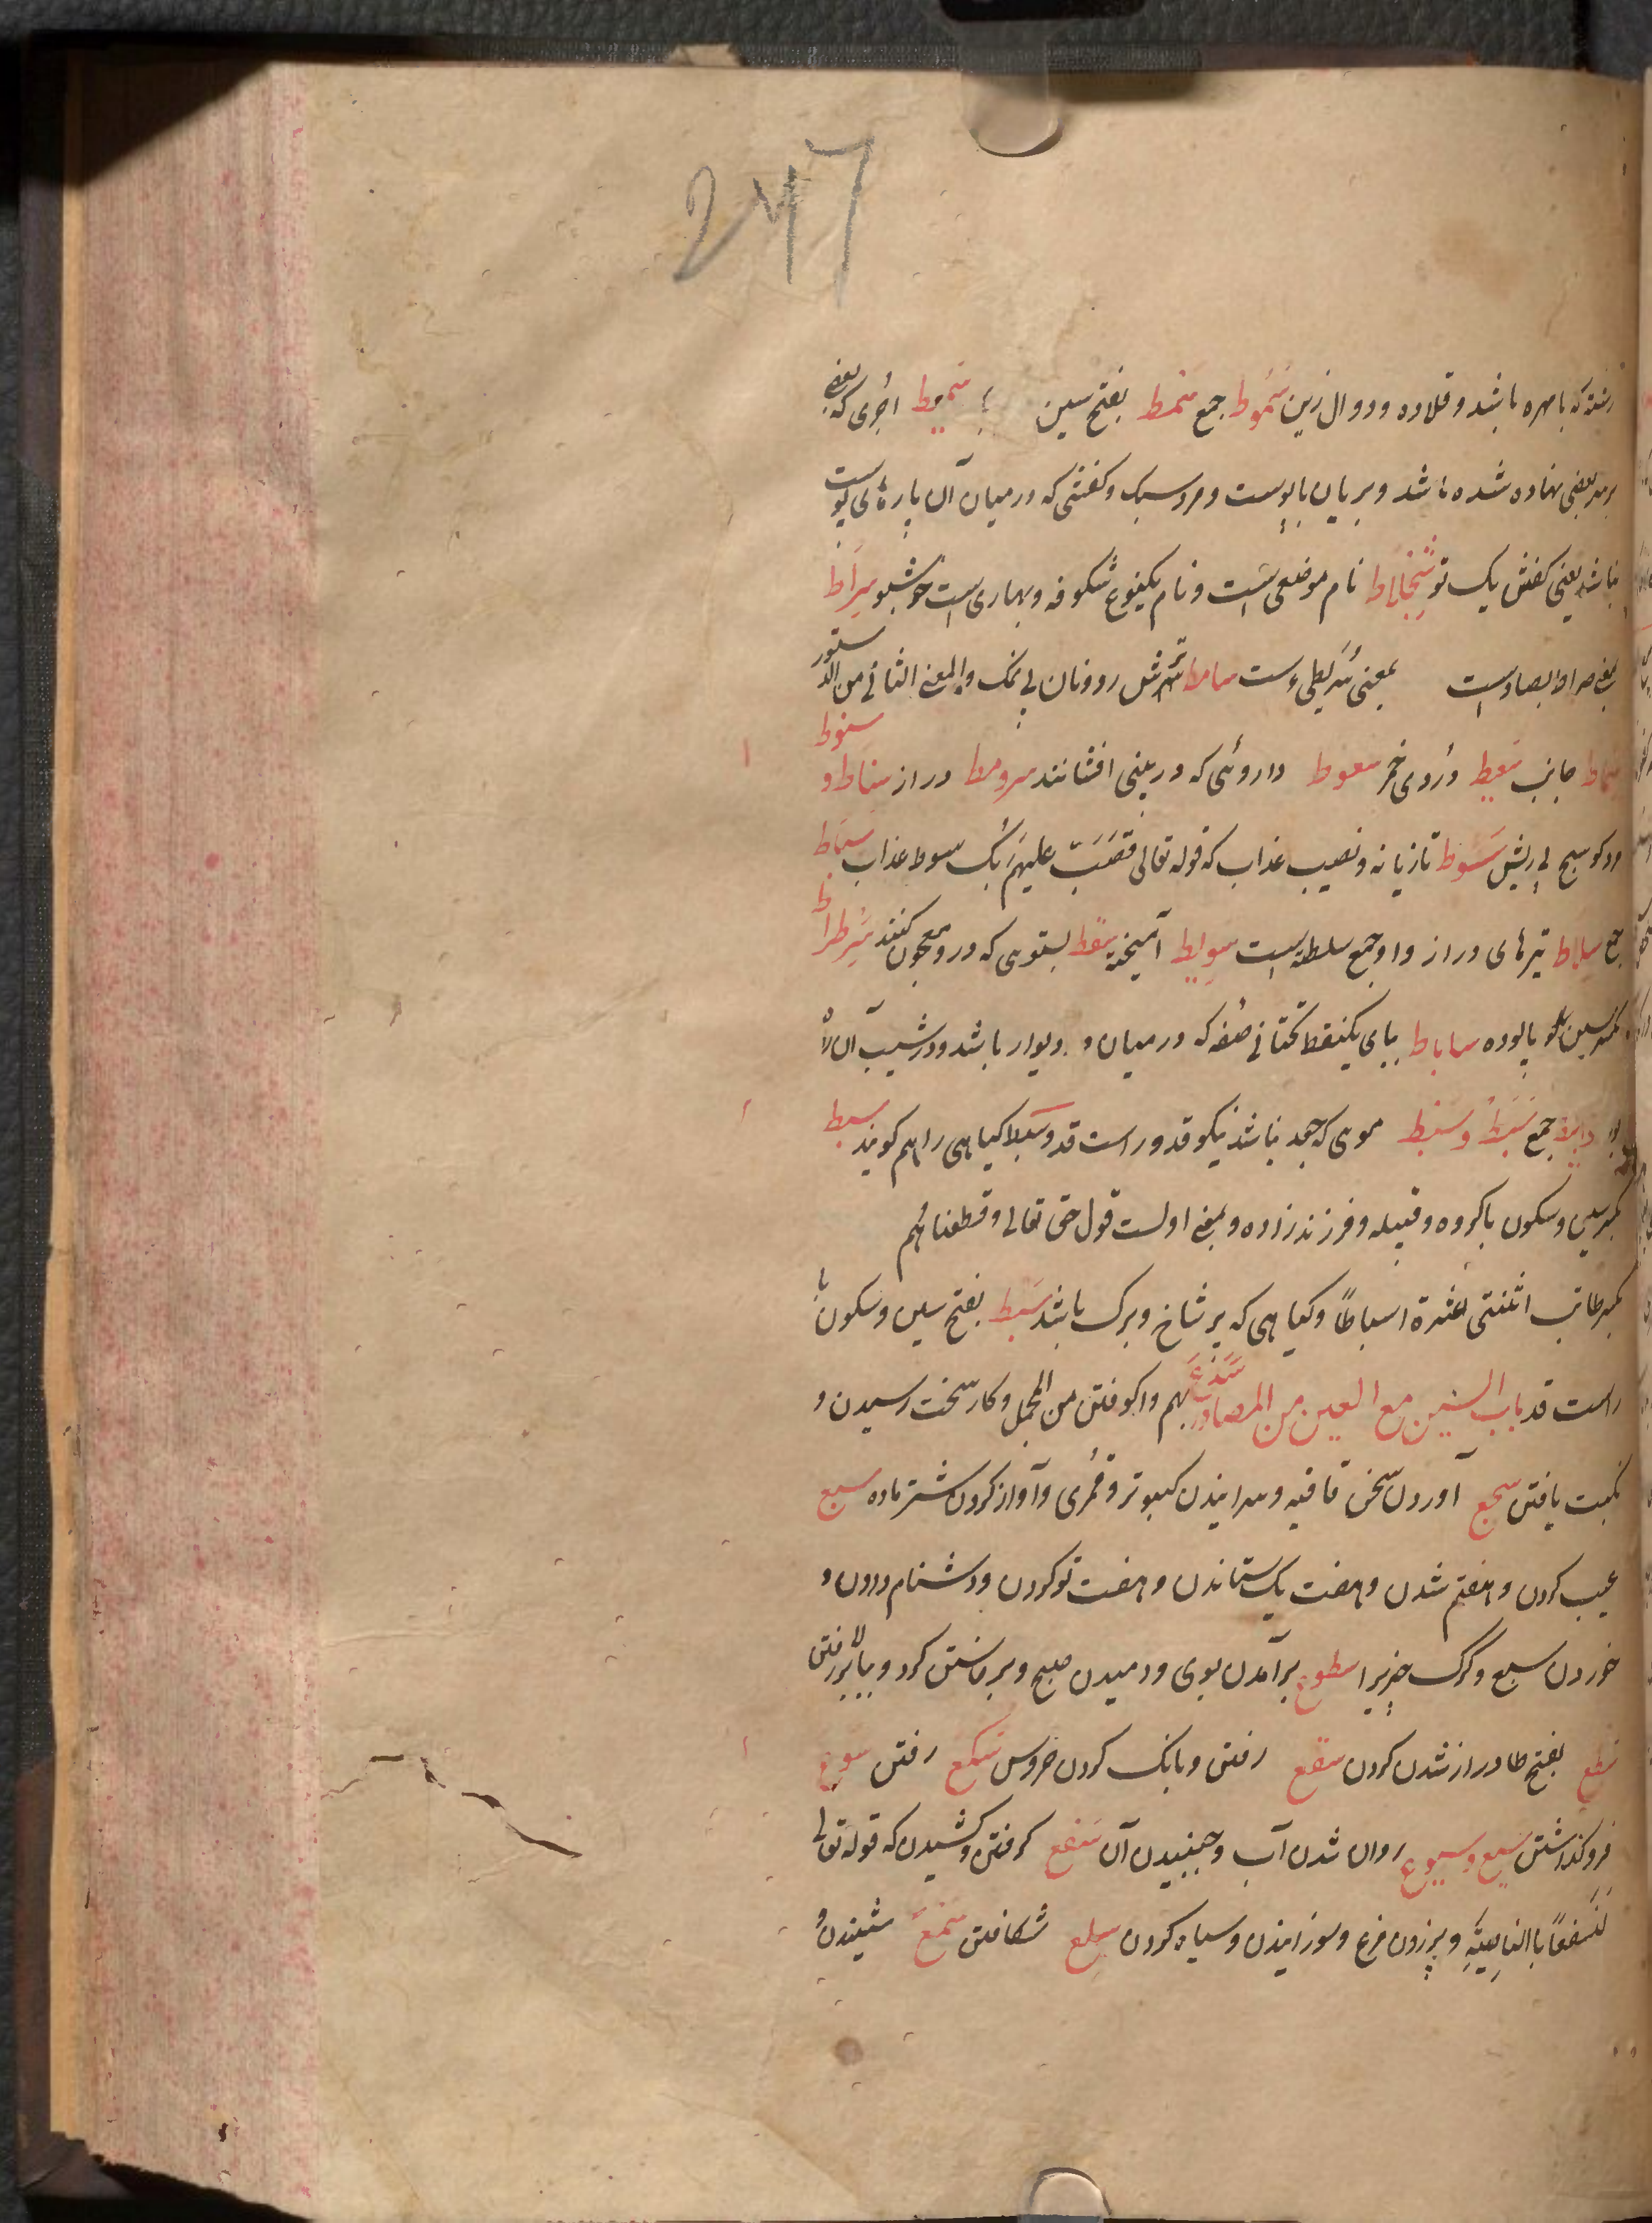 247
رشته که با مهره باشد و قلاده و دوال زین سُمُوط جمع سمط بفتح سین سمیط اجری که بعضی
بر سر بعضی نهاده شده باشد و بریان با پوست و مرد سبک و کفشی که درمیان آن پارهٔ پوست
نباشد یعنی کفش یک تو سنجلاط نام موضعی است و نام یکنوع شکوفه و بهاری است خوشبو سراط
بمعنی صراط بصاد است بمعنی سریطی است سامط ترش رو و نان بی نمک والمعنی الثانی من الدستور
سماط جانب سعیط دُردی خمر سعوط داروئی که در بینی افشانند سرومط دراز سناط و سنوط
مرد کوسج بی ریش سَوط تازیانه و نصیب عذاب که قوله تعالی فَصَبَّ علیهم ربک سوط عذاب سیاط
جمع سلاط تیرهای دراز واو جمع سلطه است سویط آمیخته سقط بستوی که درو معجون کنند سرطراط
بکسر سین پالوده ساباط ببای یکنقطه تحتانی صفه که درمیان دو دیوار باشد و در شیب آن راه
جمع سَبَط و سَبْط موی که جعد نباشد نیکو قد و راست قد و سبط گیاهی را هم گویند سبط
بکسر سین و سکون با گروه و قبیله و فرزند زاده و بمعنی اولست قول حق تعالی وقطعناهم
اثنتی عشرة اسباطاً و گیاهی که پر شاخ و برگ باشد سَبط بفتح سین و سکون با
راست قد باب السین مع العین من المصادر سَدْع بهم واکوفتن من المجمل و کار سخت رسیدن و
نکبت یافتن سجع آوردن سخن قافیه و سرائیدن کبوتر و قمری و آواز کردن شتر ماده سبع
عیب کردن و هفتم شدن و هفت یک ستاندن و هفت تو کردن و دشنام دادن و
خوردن سبع و گرگ چیزیرا سطوع برآمدن بوی و دمیدن صبح و برخاستن گرد و ببالا بر رفتن
سطع بفتح طا دراز شدن گردن سقع رفتن و بانگ کردن خروس سکع رفتن سوع
فروگذاشتن سیع و سیوع روان شدن آب و جنبیدن آن سفع گرفتن و کشیدن که قوله تعالی
لَنَسفعًا بالناصیةِ و پر زدن مرغ و سوزانیدن و سیاه کردن سلع شکافتن سمع شنیدن و